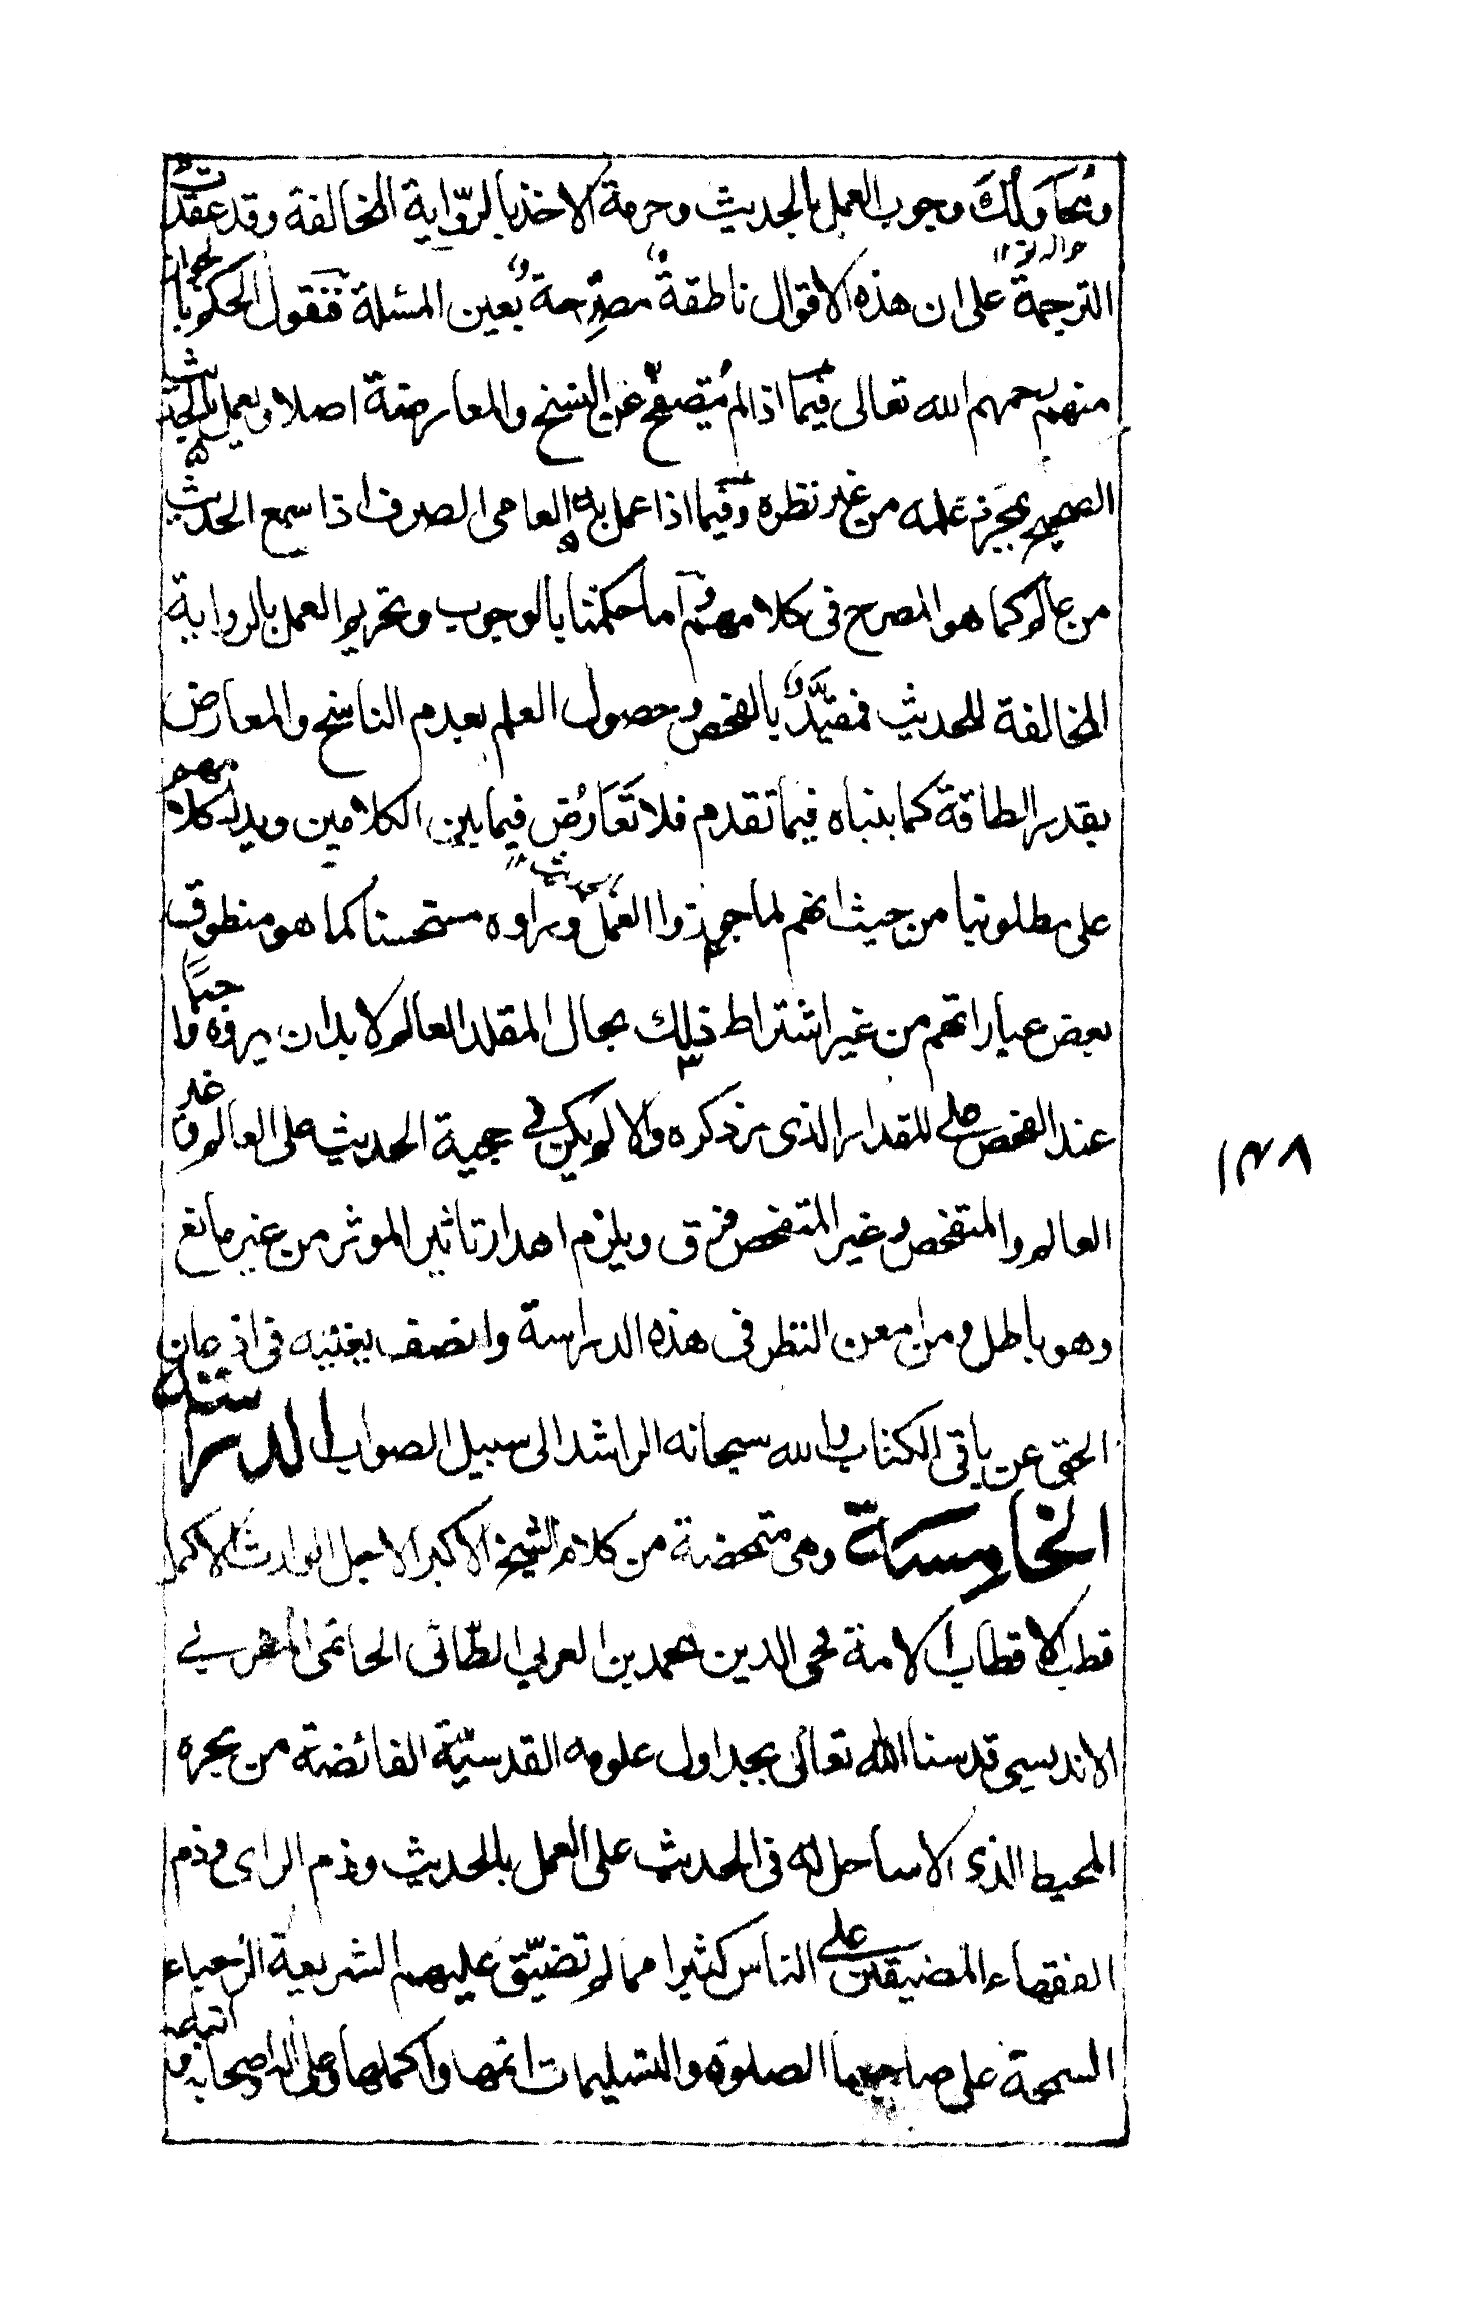 ومحاولك وجوب العمل بالحديث وحرمة الاخذ بالرّواية المخالفة وقد عقدت
الترجمة على ان هذه الاقوال ناطقةٌ مصرِّحة بعين المسئلة فنقول الحكم بالجواز
منهم رحمهم الله تعالى فيما اذا لم يتصفح عن النسخ والمعارضة اصلا ويعمل بالحديث
الصحيح بمجرد علمه من غير نظره وفيما اذا عمل به العامى الصرف اذا سمع الحديث
من عالم كما هو المصرح فى كلامهم واما حكمنا بالوجوب وتحريم العمل بالرواية
المخالفة للحديث فمقيَّدٌ بالفحص وحصول العلم بعدم الناسخ والمعارض
بقدر الطاقة كما بيناه فيما تقدم فلا تَعَارُض فيما بين الكلامين ويدل كلامهم
على مطلوبنا من حيث انهم لما جوزوا العمل وراوه مستحسنا كما هو منطوق
بعض عباراتهم من غير اشتراط ذلك بحال المقلد العالم لا بد ان يروه واجبًا
عند الفحص على المقدار الذى مر ذكره والا لم يكن فى حجية الحديث على العالم وغير
العالم والمتفحص وغير المتفحص فرق ويلزم اهدار تاثير الموثر من غير مانع
وهو باطل ومن امعن النظر فى هذه الدراسة وانصف يغنيه فى اذعان
الحق عن باقى الكتاب والله سبحانه الراشد الى سبيل الصواب الدراسة
الخامسة وهى متمحضة من كلام الشيخ الاكبر الاجل الوارث الاكمل
قطب الاقطاب الامة محى الدين محمد بن العربي الطّائى الحاتمى المغربي
الاندلسى قدسنا الله تعالى بجداول علومه القدسيّة الفائضة من بحره
المحيط الذى لا ساحل له فى الحديث على العمل بالحديث وذم الراى وذم
الفقهاء المضيقين على الناس كثيرا مما لم تضيّق عليهم الشريعة الرحباء
السمحة على صاحبها الصلوة والتسليمات اتمها واكملها وعلى اله واصحابه واتباعه
١٣٨